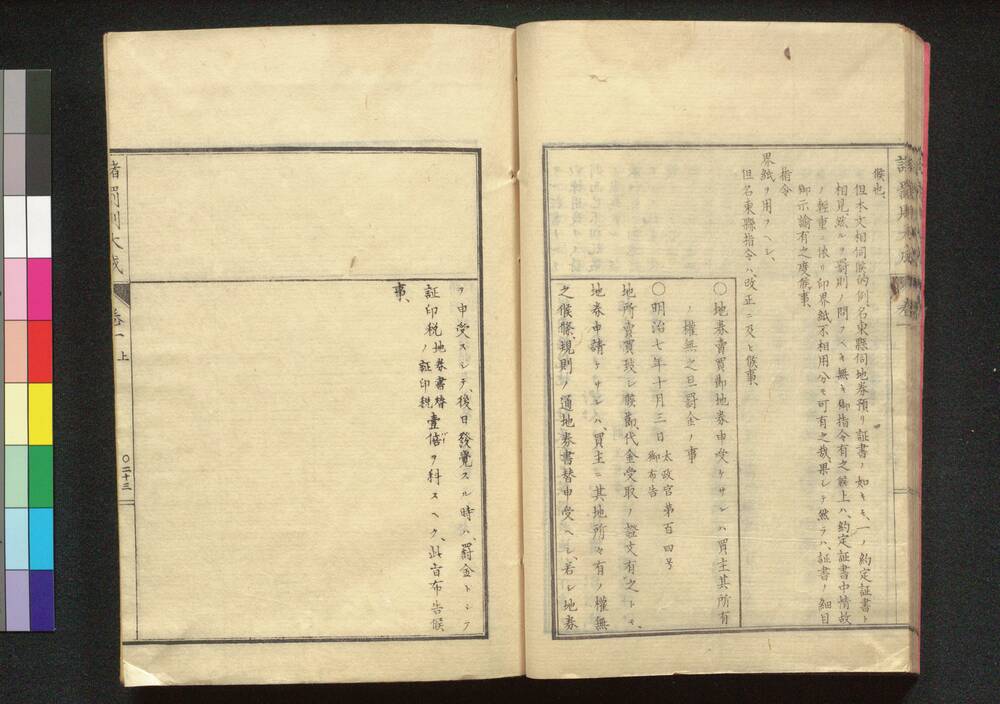 候也、
但本文相伺候的例名東縣伺地券預リ証書ノ如キモ、一ノ約定証書ト
相見、然ルヲ罰則ノ問フヘキ無キ御指令有之候上ハ、約定証書中情故
ノ輕重ニ依リ印界紙不相用分モ可有之哉果シテ然ラハ、証書ノ細目
御示諭有之度候事、
指令
界紙ヲ用フヘシ、
但名東縣指令ハ、改正ニ及ヒ候事、
〇地券賣買御地券申受ケサレハ買主其所有
ノ權無之旦罰金ノ事
〇明治七年十月三日 太政官第百四号 御布告
地所賣買致シ候節代金受取ノ證文有之トモ、
地券申請ケサレハ、買主ニ其地所所有ノ權無
之候條、規則ノ通地券書替申受ヘシ、若シ地券
諸罰則大成 卷一
ヲ申受スシテ、後日發覺スル時ハ、罰金トシテ
証印税地券書替ノ証印税壹倍ヲ科スヘク、此旨布告候
事、
諸罰則大成 卷一 上 〇二十三